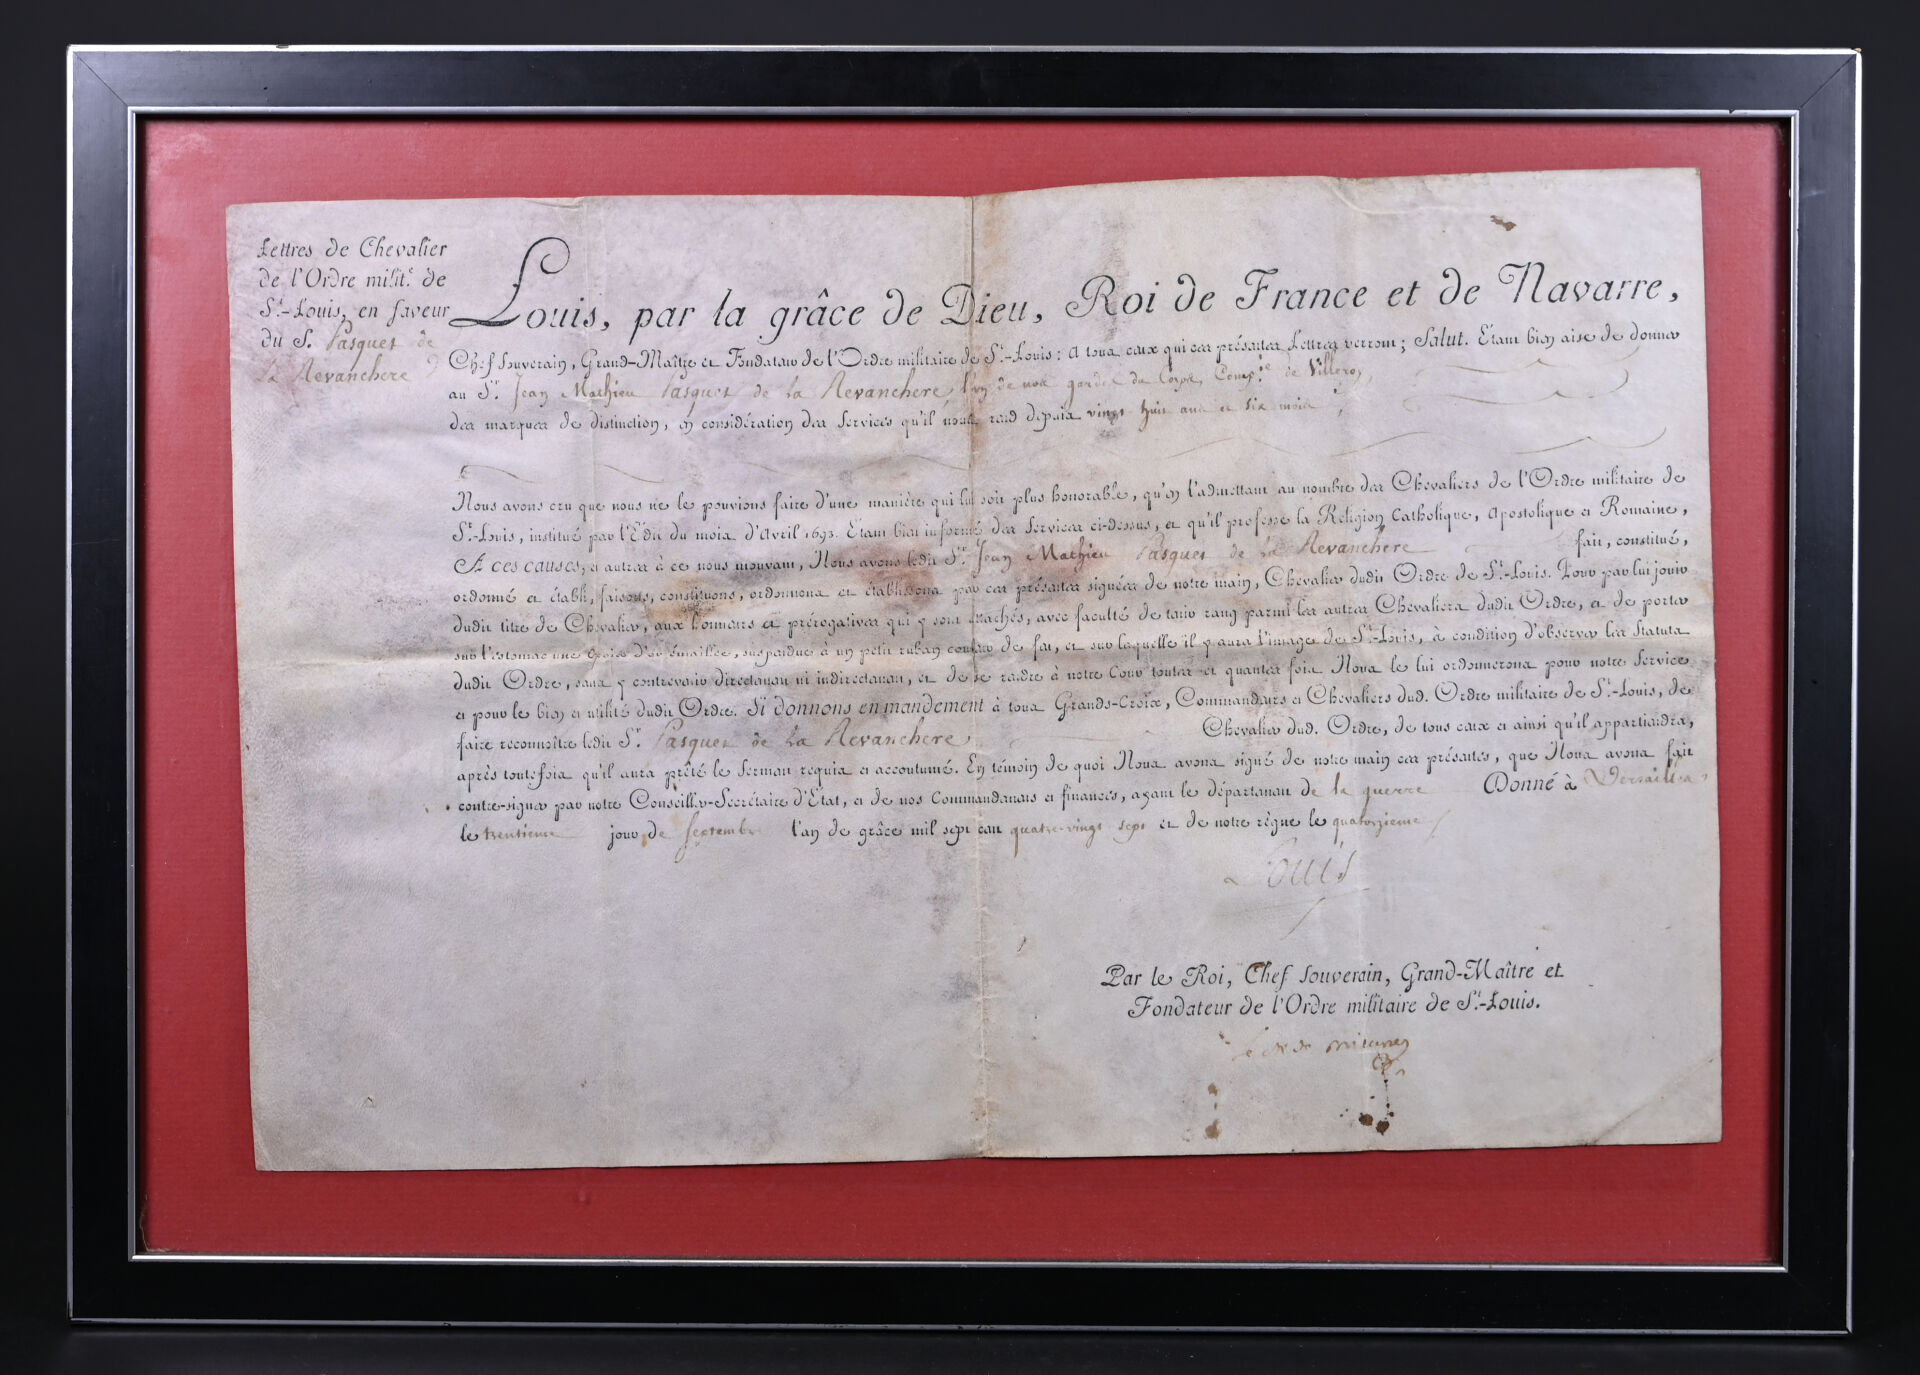 Lettres de Chevalier
de l'Ordre milit.e de
S.t-Louis, en faveur
du S. Pasquet de
La Revanchere
Louis, par la grâce de Dieu, Roi de France et de Navarre,
Chef Souverain, Grand-Maître et Fondateur de l'Ordre militaire de S.t-Louis : A tous ceux qui ces présentes Lettres verront ; Salut. Etant bien aise de donner
au S.r Jean Mathieu Pasquet de la Revanchere, l'un de nos gardes du Corps, Comp.ie de Villeroy,
des marques de distinction, en considération des Services qu'il nous rend depuis vingt huit ans et six mois ;
Nous avons cru que nous ne le pouvions faire d'une manière qui lui soit plus honorable, qu'en l'admettant au nombre des Chevaliers de l'Ordre militaire de
S.t-Louis, institué par l'Edit du mois d'Avril 1693. Etant bien informé des Services ci-dessus, et qu'il professe la Religion Catholique, Apostolique et Romaine,
A ces causes, et autres à ce nous mouvant, Nous avons ledit S.r Jean Mathieu Pasquet de la Revanchere fait, constitué,
ordonné et établi, faisons, constituons, ordonnons et établissons par ces présentes signées de notre main, Chevalier dudit Ordre de S.t-Louis. Pour par lui jouir
dudit titre de Chevalier, aux honneurs et prérogatives qui y sont attachés, avec faculté de tenir rang parmi les autres Chevaliers dudit Ordre, et de porter
sur l'estomac une Croix d'or émaillée, suspendue à un petit ruban couleur de feu, et sur laquelle il y aura l'image de S.t-Louis, à condition d'observer les Statuts
dudit Ordre, sans y contrevenir directement ni indirectement, et de se rendre à notre Cour toutes et quantes fois Nous le lui ordonnerons pour notre Service
et pour le bien et utilité dudit Ordre. Si donnons en mandement à tous Grands-Croix, Commandeurs et Chevaliers dud. Ordre militaire de S.t-Louis, de
faire reconnoître ledit S.r Pasquet de La Revanchere Chevalier dud. Ordre, de tous ceux et ainsi qu'il appartiendra,
après toutefois qu'il aura prêté le Serment requis et accoutumé. En témoin de quoi Nous avons signé de notre main ces présentes, que Nous avons fait
contre-signer par notre Conseiller-Secrétaire d'Etat, et de nos Commandemens et finances, ayant le département de la guerre Donné à Versailles
le trentieme jour de Septembre l'an de grâce mil sept cent quatre-vingt sept et de notre règne le quatorzieme
Louis
Par le Roi, Chef Souverain, Grand-Maître et
Fondateur de l'Ordre militaire de S.t-Louis.